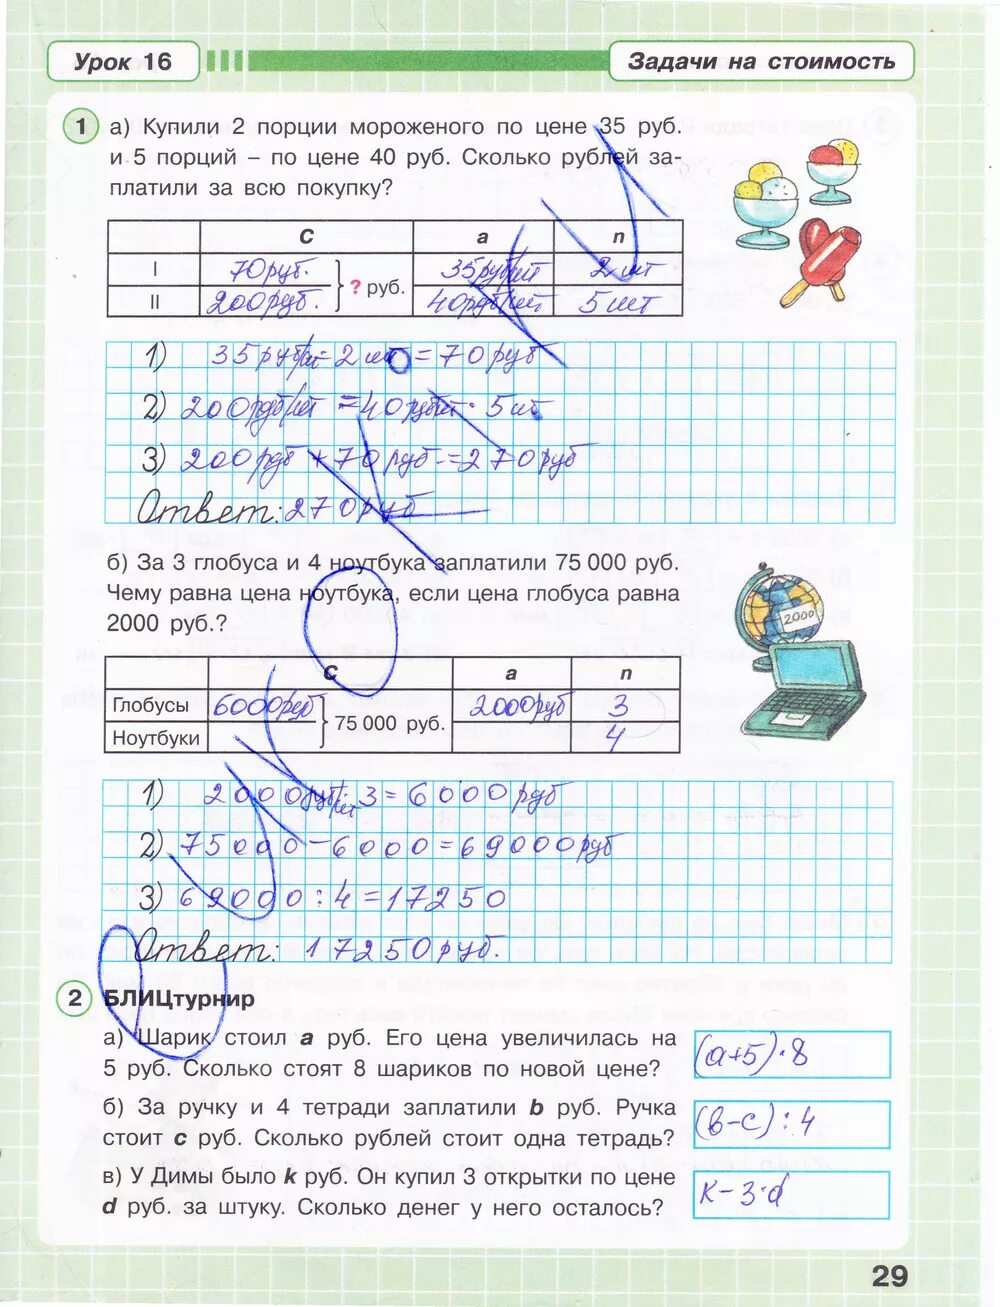 Урок 16
Задачи на стоимость
1 а) Купили 2 порции мороженого по цене 35 руб.
и 5 порций – по цене 40 руб. Сколько рублей за-
платили за всю покупку?
С а n
I 70 руб. 35 руб/шт 2 шт
? руб.
II 200 руб. 40 руб/шт 5 шт
1) 35 руб/шт · 2 шт = 70 руб
2) 200 руб/шт = 40 руб/шт · 5 шт
3) 200 руб + 70 руб = 270 руб
Ответ: 270 руб
б) За 3 глобуса и 4 ноутбука заплатили 75 000 руб.
Чему равна цена ноутбука, если цена глобуса равна
2000 руб.?
2000
С а n
Глобусы 6000 руб 2000 руб 3
75 000 руб.
Ноутбуки 4
1) 2000 руб/шт · 3 = 6000 руб
2) 75000 – 6000 = 69000 руб
3) 69000 : 4 = 17250
Ответ: 17250 руб.
2 БЛИЦтурнир
а) Шарик стоил а руб. Его цена увеличилась на
5 руб. Сколько стоят 8 шариков по новой цене?
(а+5) · 8
б) За ручку и 4 тетради заплатили b руб. Ручка
стоит с руб. Сколько рублей стоит одна тетрадь?
(в–с) : 4
в) У Димы было k руб. Он купил 3 открытки по цене
d руб. за штуку. Сколько денег у него осталось?
к – 3 · d
29